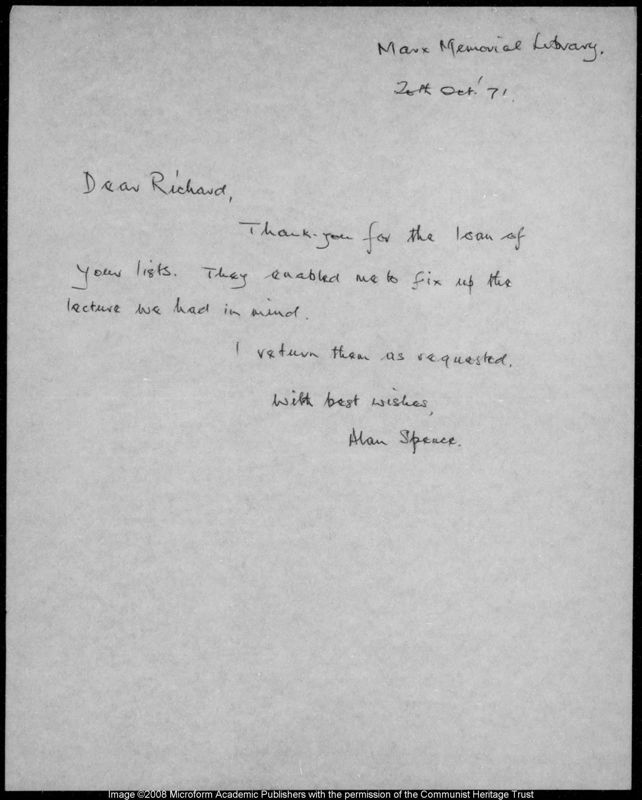 Marx Memorial Library.
20th Oct. '71.
Dear Richard,
Thank-you for the loan of
your lists. They enabled me to fix up the
lecture we had in mind.
I return them as requested.
With best wishes,
Alan Spence.
Image ©2008 Microform Academic Publishers with the permission of the Communist Heritage Trust